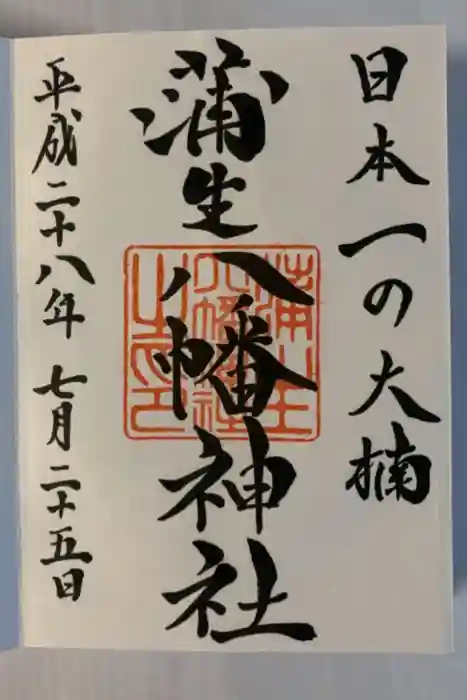 日本一の大楠
蒲生八幡神社
平成二十八年七月二十五日